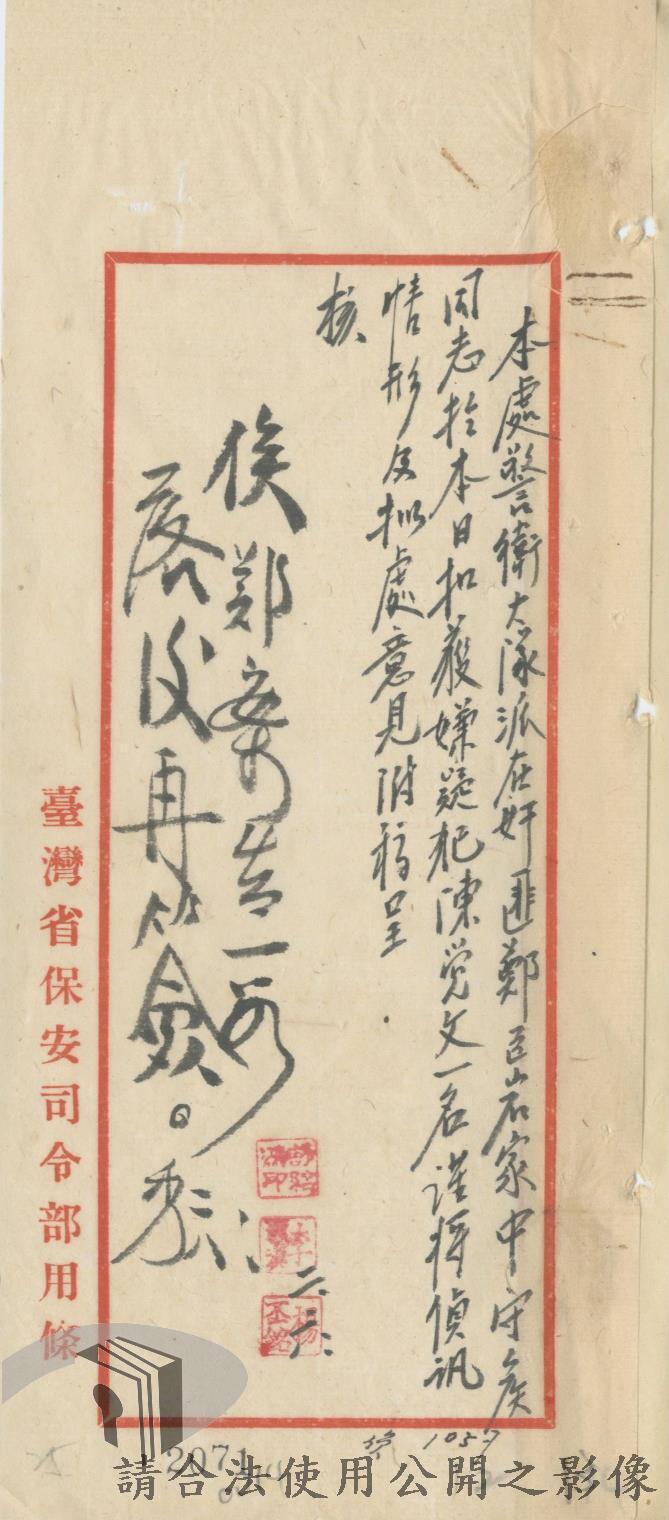 本處警衛大隊派在奸匪鄭臣岩家中守候
同志於本日扣獲嫌疑犯陳覺文一名謹將偵訊
情形及拟處意見附稿呈
核
俟鄭案告一段
落後再簽。
二、六、
臺灣省保安司令部用條
1057
2071
請合法使用公開之影像